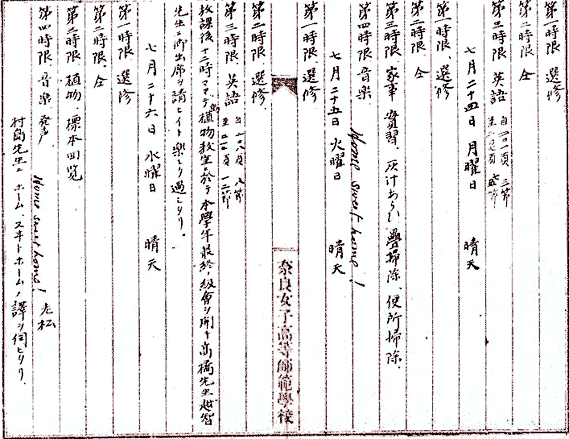 第一時限 選修
第二時限 仝
第三時限 英語
七月二十四日 月曜日 晴天
第一時限、選修
第二時限 仝
第三時限 家事 實習、灰汁あらい 疊掃除、便所掃除、
第四時限 音楽 Home sweet home!
七月二十五日 火曜日 晴天
第一時限 選修
奈良女子高等師範學校
第二時限 選修
第三時限 英語
放課後十二時マデ植物教室ニ於テ本學年最終ノ級會ヲ開キ高橋先生越智
先生ニ御出席ヲ請ヒイト楽シク過シタリ。
七月二十六日 水曜日 晴天
第一時限 選修
第二時限 仝
第三時限 植物 標本回覧
第四時限 音楽 発声 Home sweet home! 老松
村島先生ニ ホーム、スヰトホームノ譯ヲ伺ヒタリ